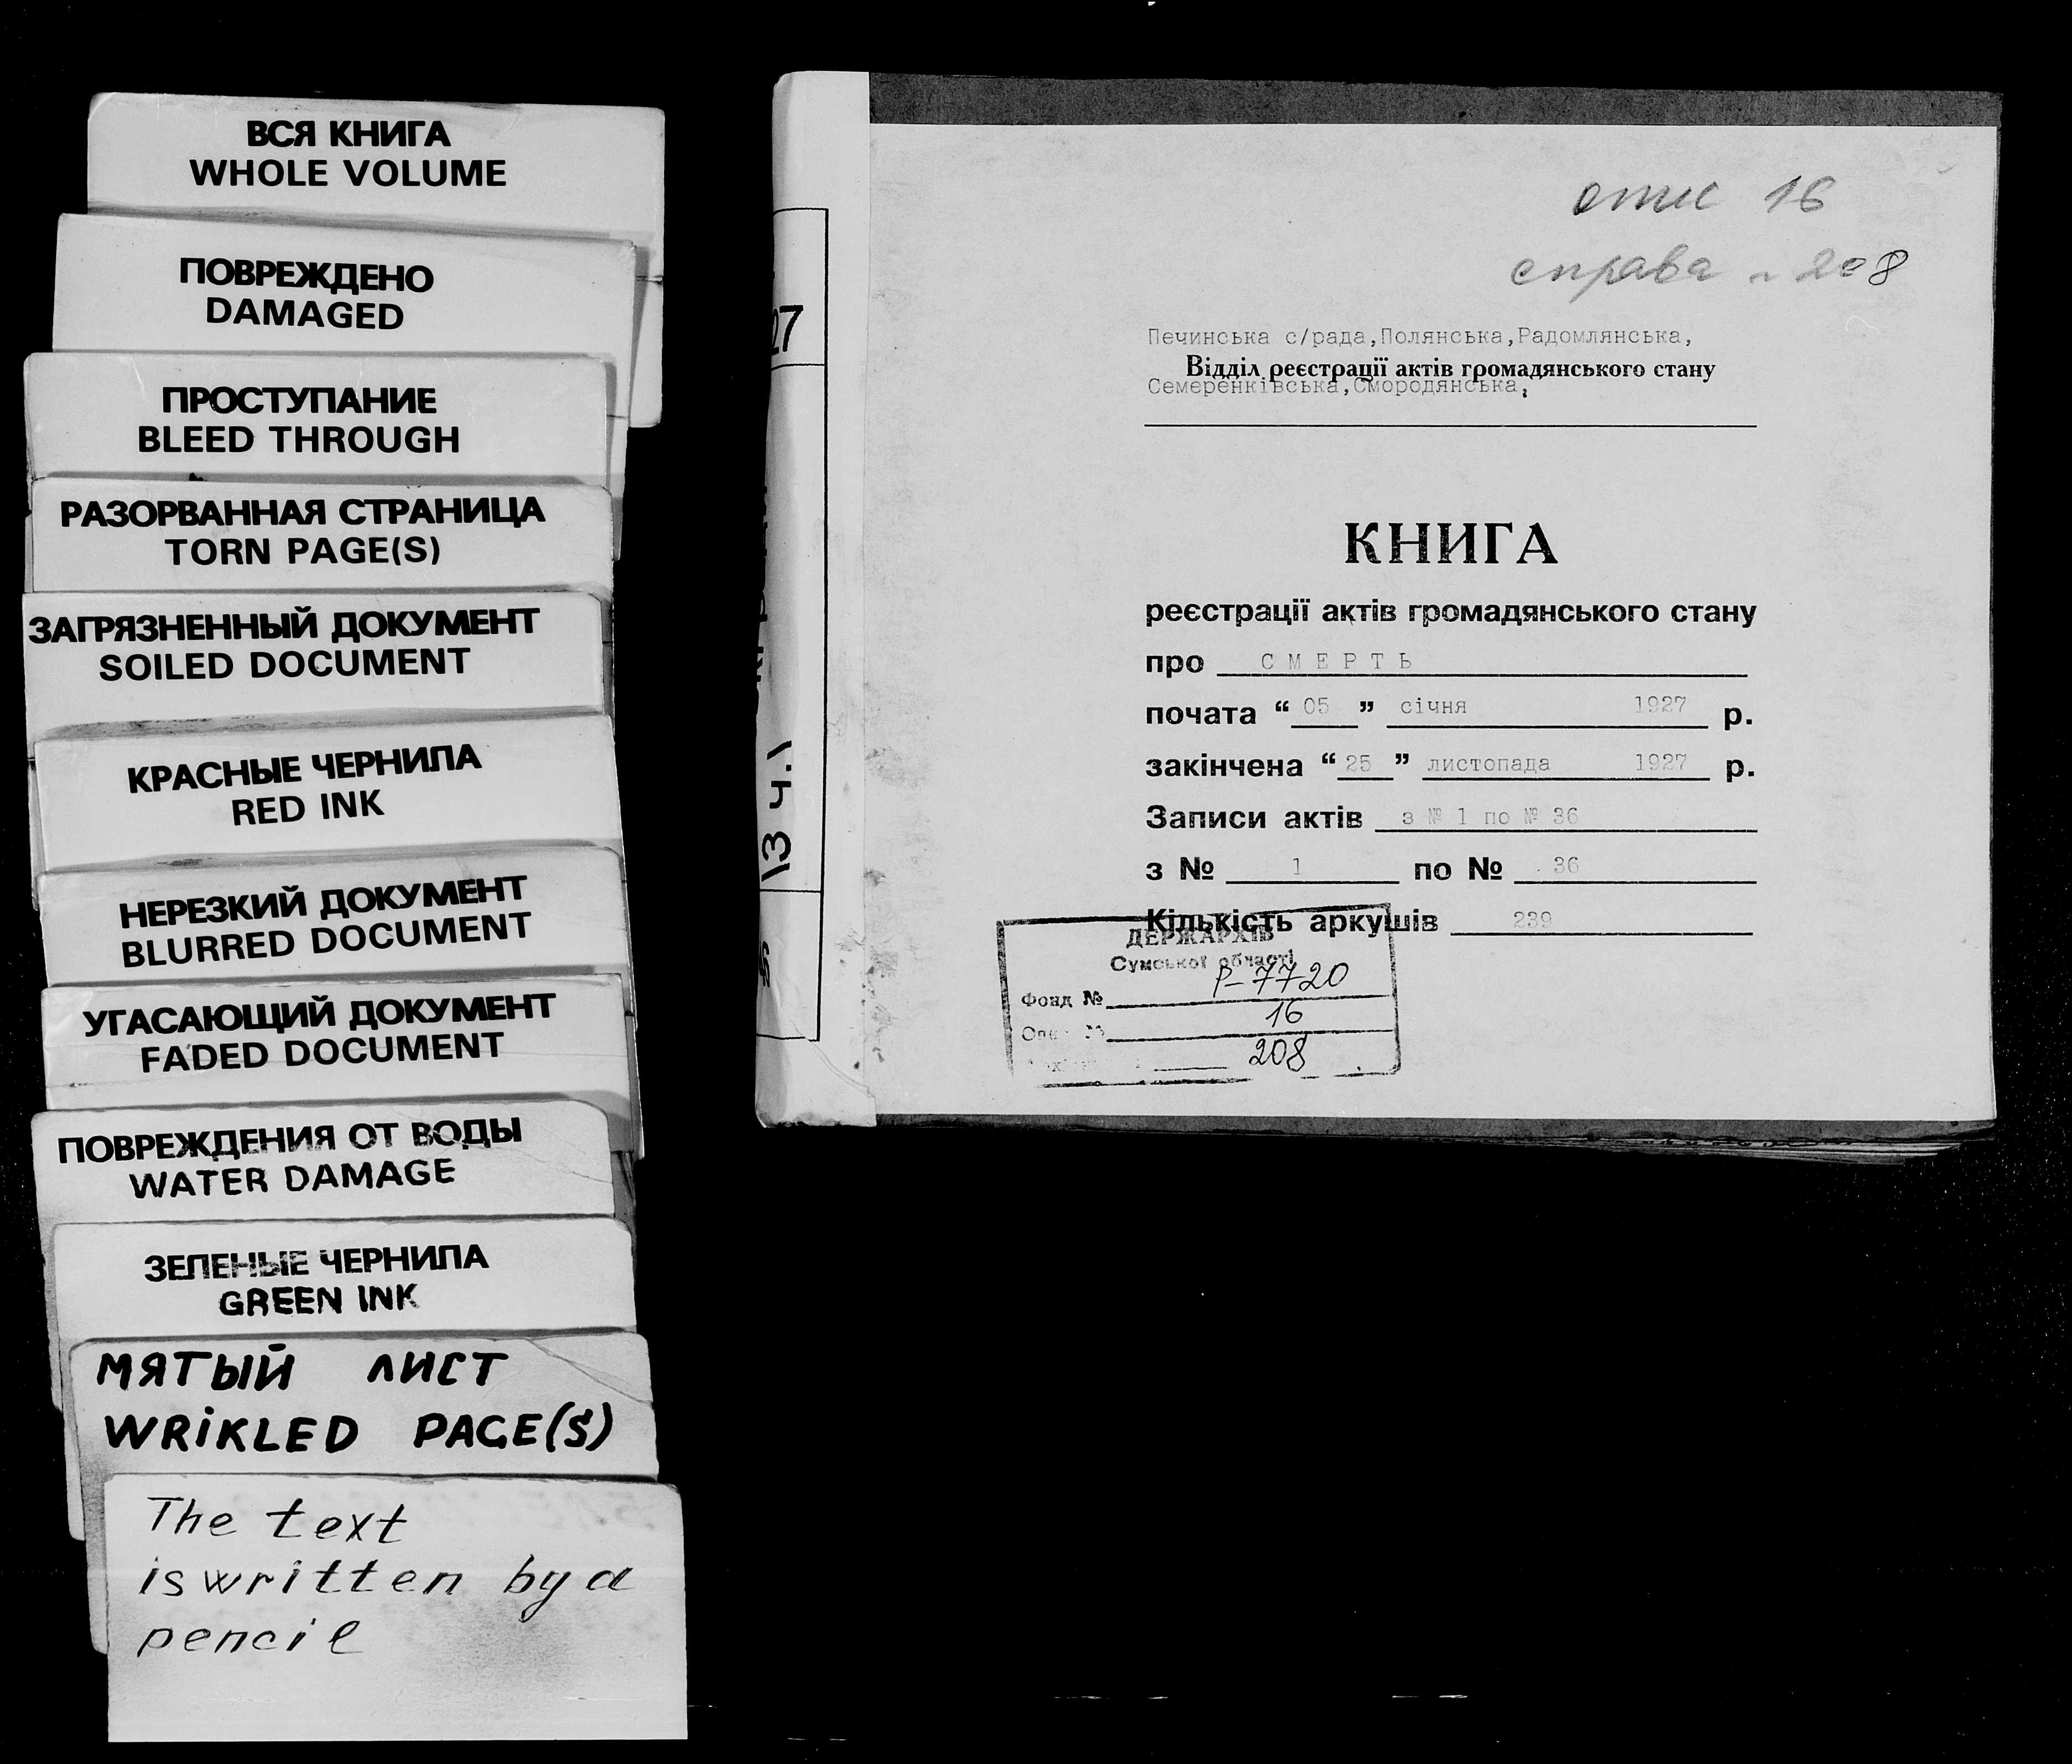 ВСЯ КНИГА
WHOLE VOLUME
ПОВРЕЖДЕНО
DAMAGED
ПРОСТУПАНИЕ
BLEED THROUGH
РАЗОРВАННАЯ СТРАНИЦА
TORN PAGE(S)
ЗАГРЯЗНЕННЫЙ ДОКУМЕНТ
SOILED DOCUMENT
КРАСНЫЕ ЧЕРНИЛА
RED INK
НЕРЕЗКИЙ ДОКУМЕНТ
BLURRED DOCUMENT
УГАСАЮЩИЙ ДОКУМЕНТ
FADED DOCUMENT
ПОВРЕЖДЕНИЯ ОТ ВОДЫ
WATER DAMAGE
ЗЕЛЕНЫЕ ЧЕРНИЛА
GREEN INK
МЯТЫЙ ЛИСТ
WRIKLED PAGE(S)
The text
is written by a
pencil
27
13 ч.1
опис 16
справа 208
Печинська с/рада,Полянська,Радомлянська,
Відділ реєстрації актів громадянського стану
Семеренківська,Смородянська,
КНИГА
реєстрації актів громадянського стану
про СМЕРТЬ
почата “05” січня 1927 р.
закінчена “25” листопада 1927 р.
Записи актів з № 1 по № 36
з № 1 по № 36
Кількість аркушів 239
ДЕРЖАРХІВ
Сумської області
Фонд № Р-7720
16
208